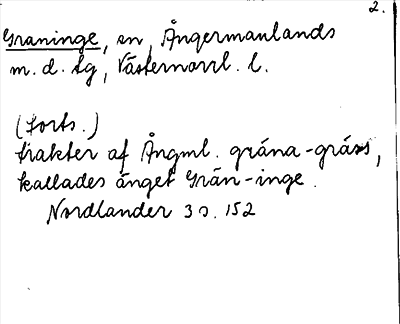 2.
Graninge, sn, Ångermanlands
m. d. tg, Västernorrl. l.
(Forts.)
trakter af Ångml. gräna-gräs,
kallades änget Grän-inge.
Nordlander 3 s. 152